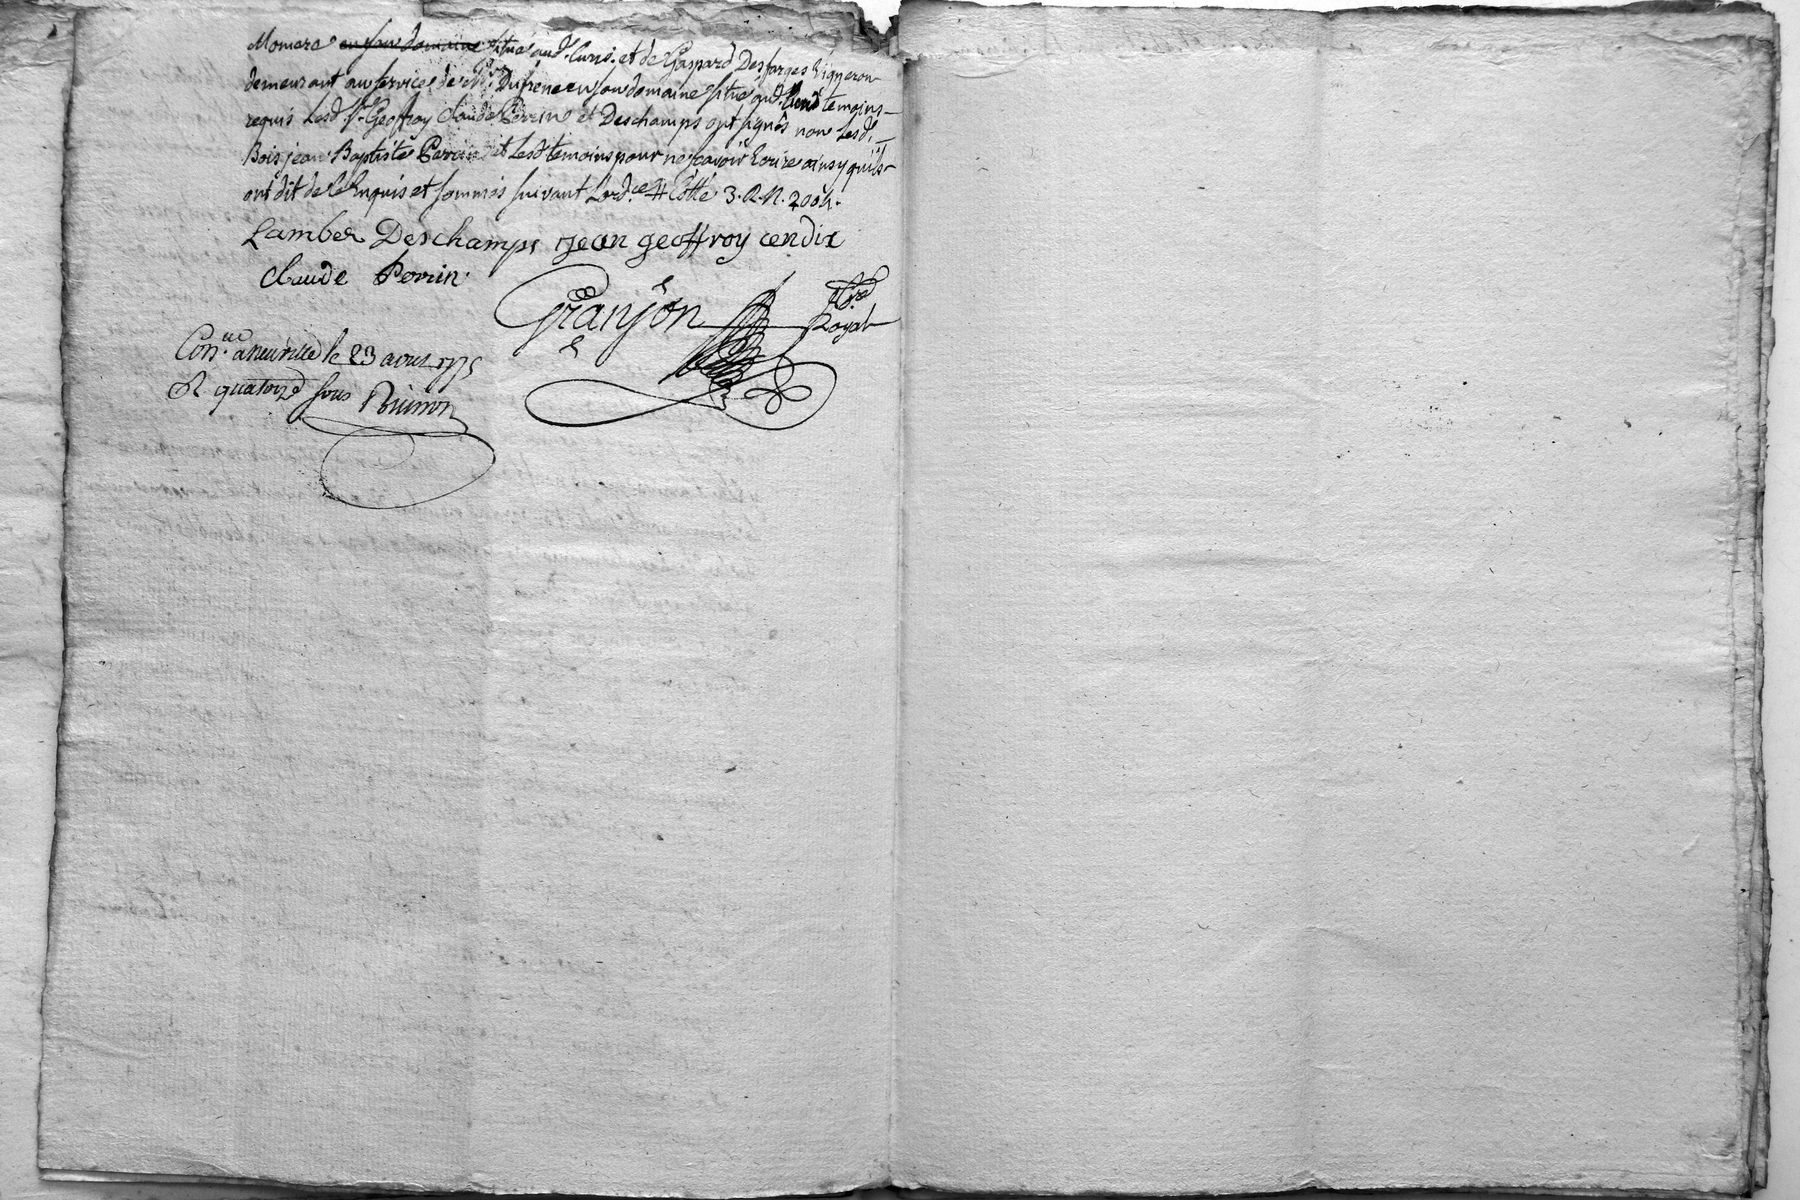 Momere en son domaine situé aud. Curis. et de Gaspard Desfarges Vigneron
demeurant au service de Mr. Dufrene en son domaine situé aud. lieu temoins
requis Lesd. Sr. Geoffroy Claude Perrin et Deschamps ont signés non Lesd.
Bois jean Baptiste Perrin et Lesd temoins pour ne scavoir Ecrire ainsy quils
ont dit de ce Enquis et sommés suivant Lord.ce # Cotté 3. R. N. 2004.
Lamber Deschamps jean geoffroy cendix
Claude Perrin
Granjon
Nre
Royal
Con. a neuville le 23 aoust 1775
R quatorze sous